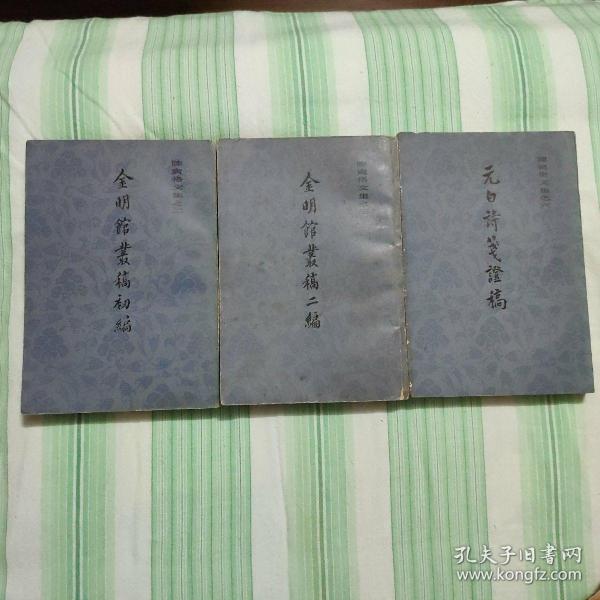 陳寅恪文集之二
金明館叢稿初編
陳寅恪文集之三
金明館叢稿二編
陳寅恪文集之六
元白詩箋證稿
孔夫子旧書网
www.kongfz.com